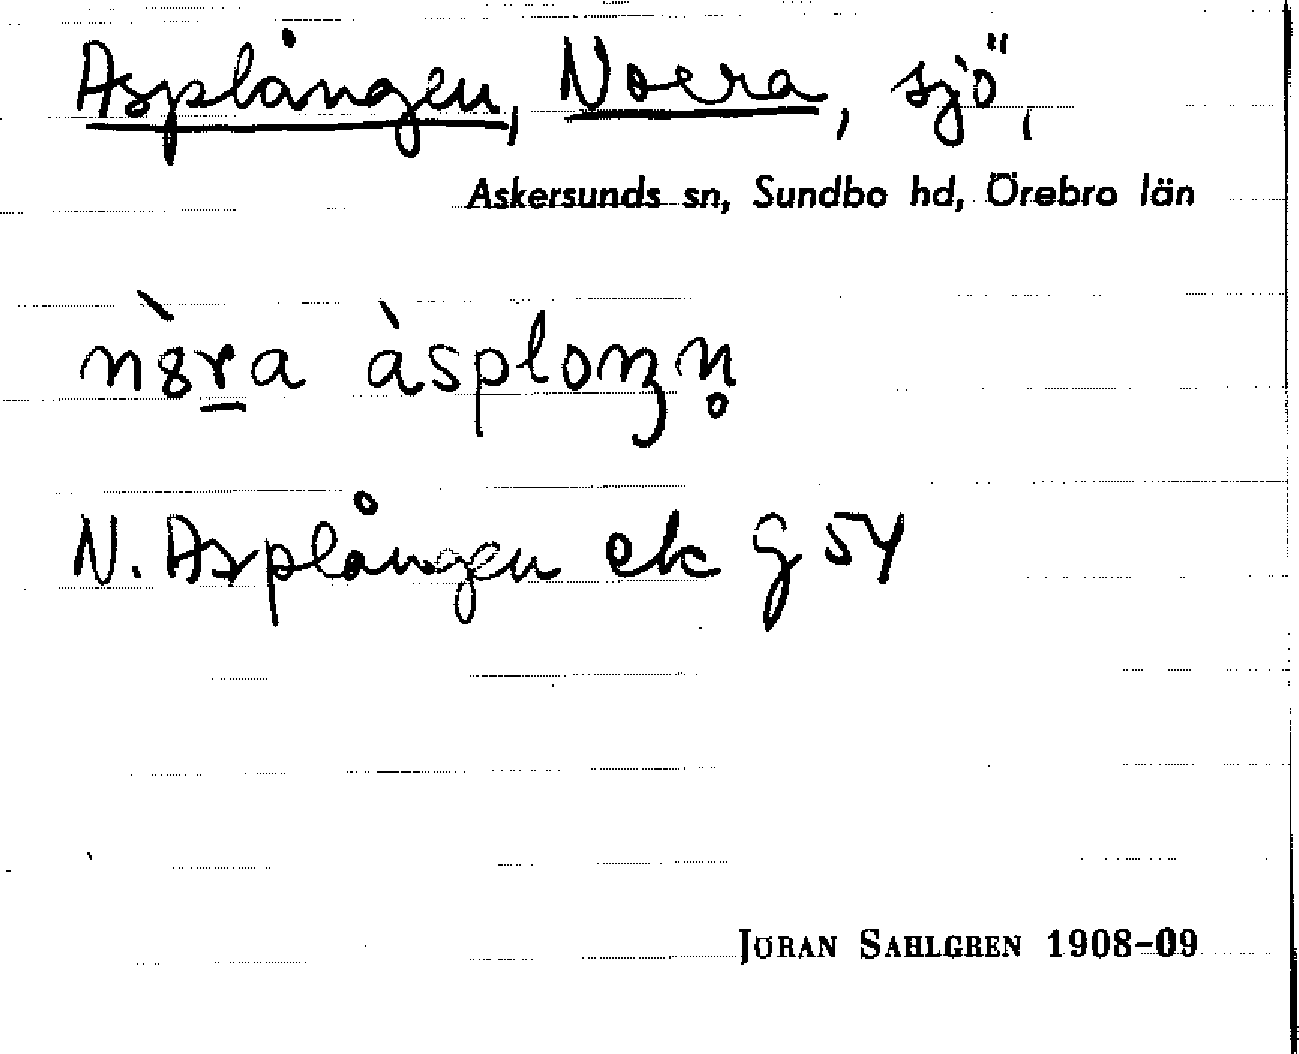 Asplången, Norra, sjö,
Askersunds sn, Sundbo hd, Örebro län
n8̀ra àsploŋn̥
N. Asplången ek G 54
JÖRAN SAHLGREN 1908-09